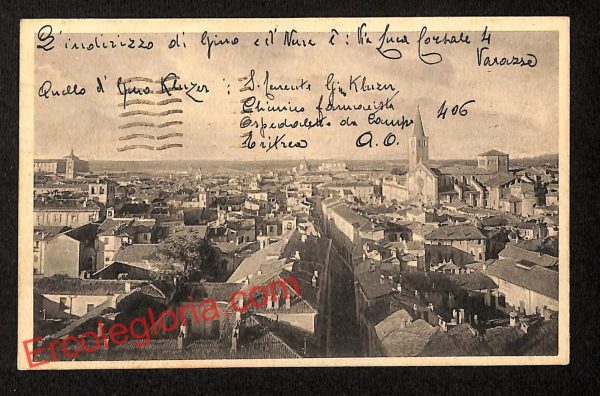 L'indirizzo di Gino e d' Nuse è: Via Luca Corsale 4
Varazze
Quello d' Gino Kluzer: S. Tenente G. Kluzer
Chimico farmacista
Ospedaletto da Campo 406
Eritrea A. O.
Ercolegloria.com